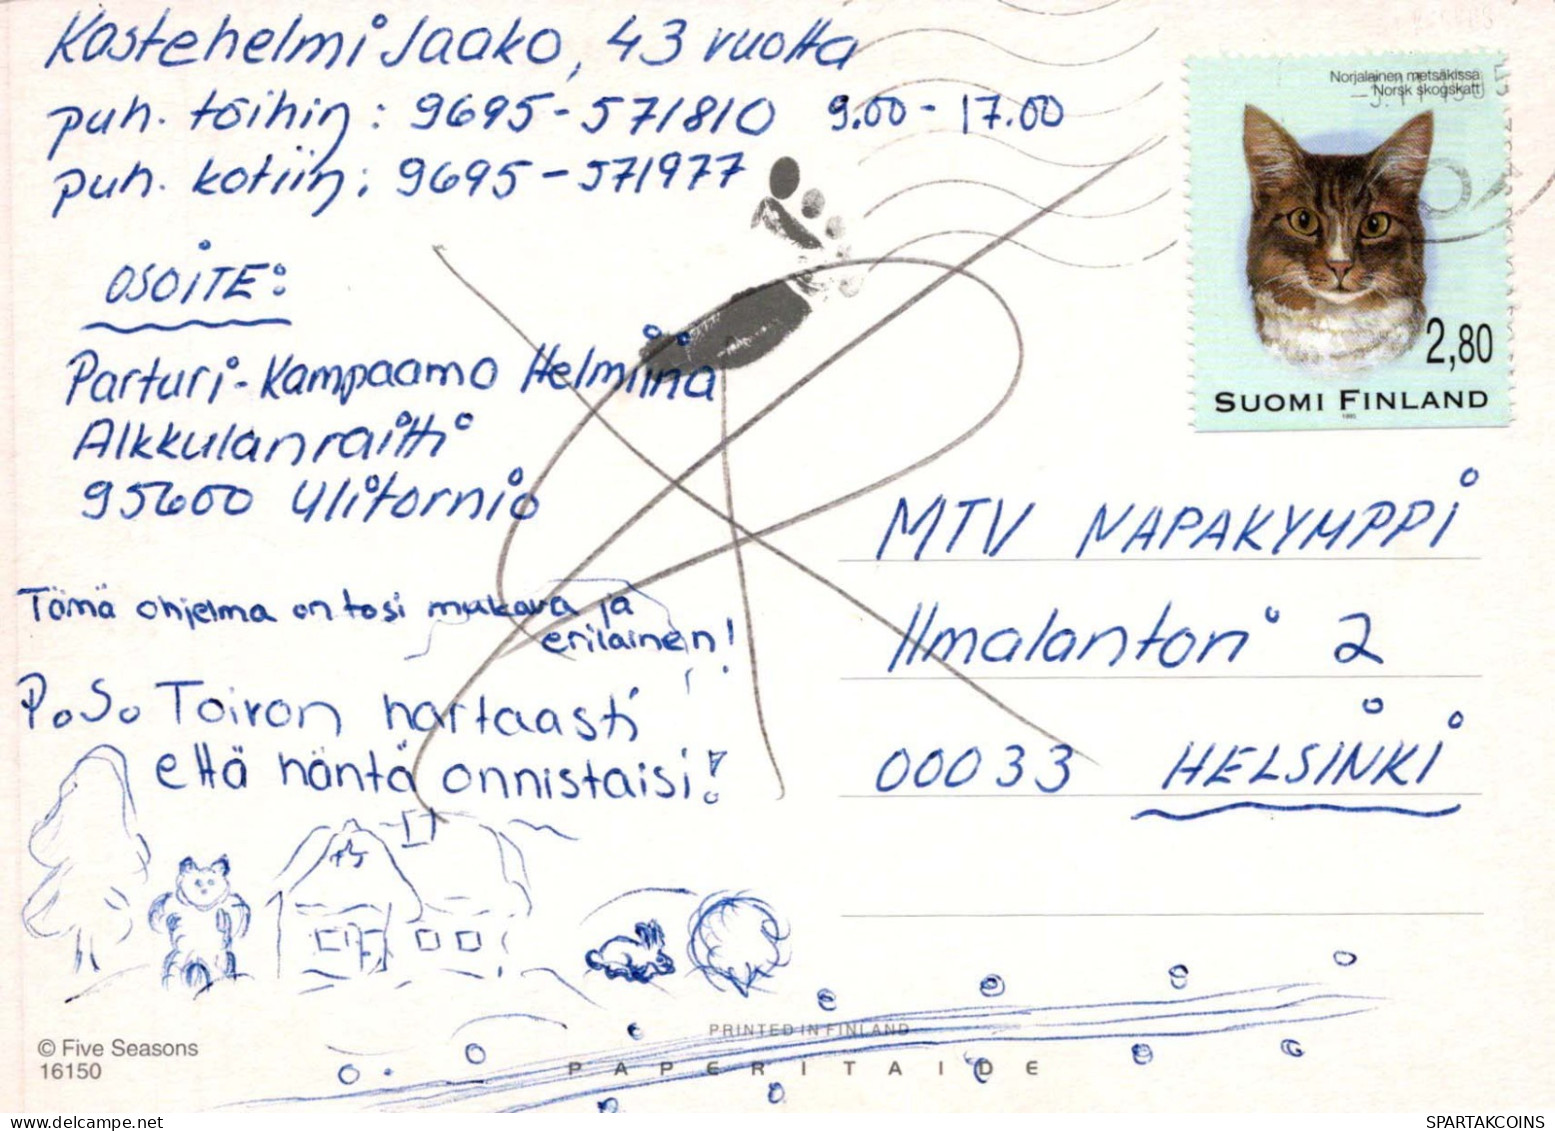 Kastehelmi Jaako, 43 vuotta
puh. töihin: 9695-571810 9.00-17.00
puh. kotiin: 9695-571977
OSOITE:
Parturi-Kampaamo Helmiina
Alkkulanraitti
95600 Ylitornio
Tämä ohjelma on tosi mukava ja
erilainen!
P.S. Toivon hartaasti
että näntä onnistaisi!
Norjalainen metsäkissa
Norsk skogskatt
2,80
SUOMI FINLAND
1995
MTV NAPAKYMPPI
Ilmalantori 2
00033 HELSINKI
© Five Seasons
16150
PRINTED IN FINLAND
PAPERITAIDE
SPARTAKCOINS